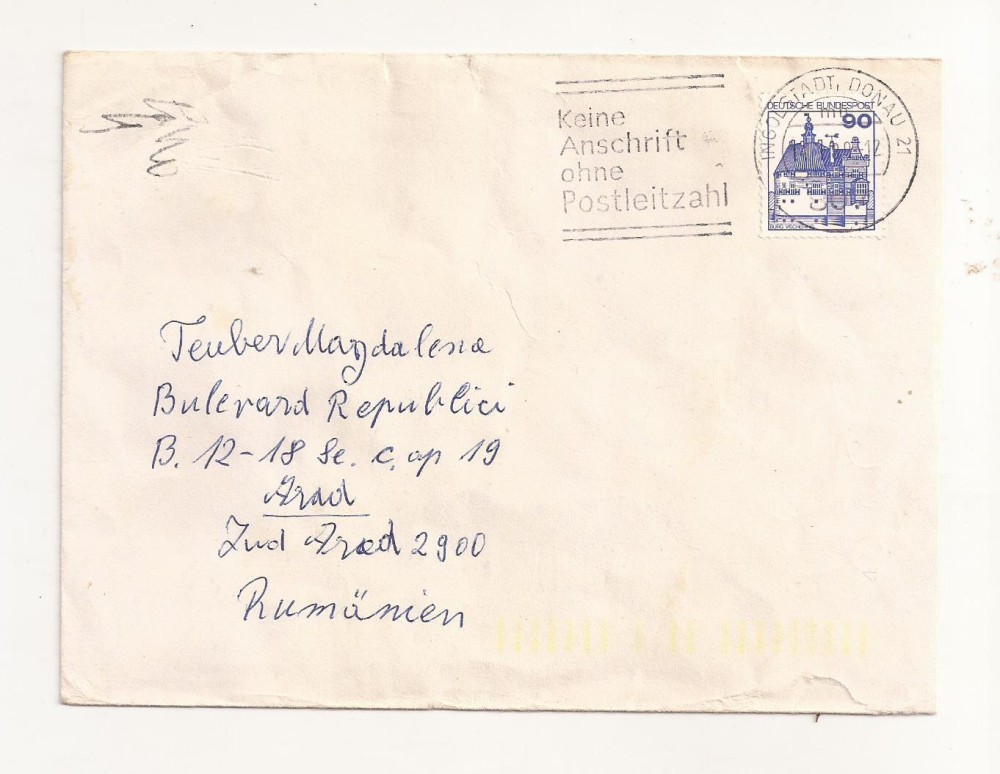 Keine
Anschrift
ohne
Postleitzahl
INGOLSTADT, DONAU 21
DEUTSCHE BUNDESPOST
90
BURG
Teuber Magdalena
Bulevard Republici
B. 12-18 Se. c, ap 19
Arad
Jud Arad 2900
Rumänien